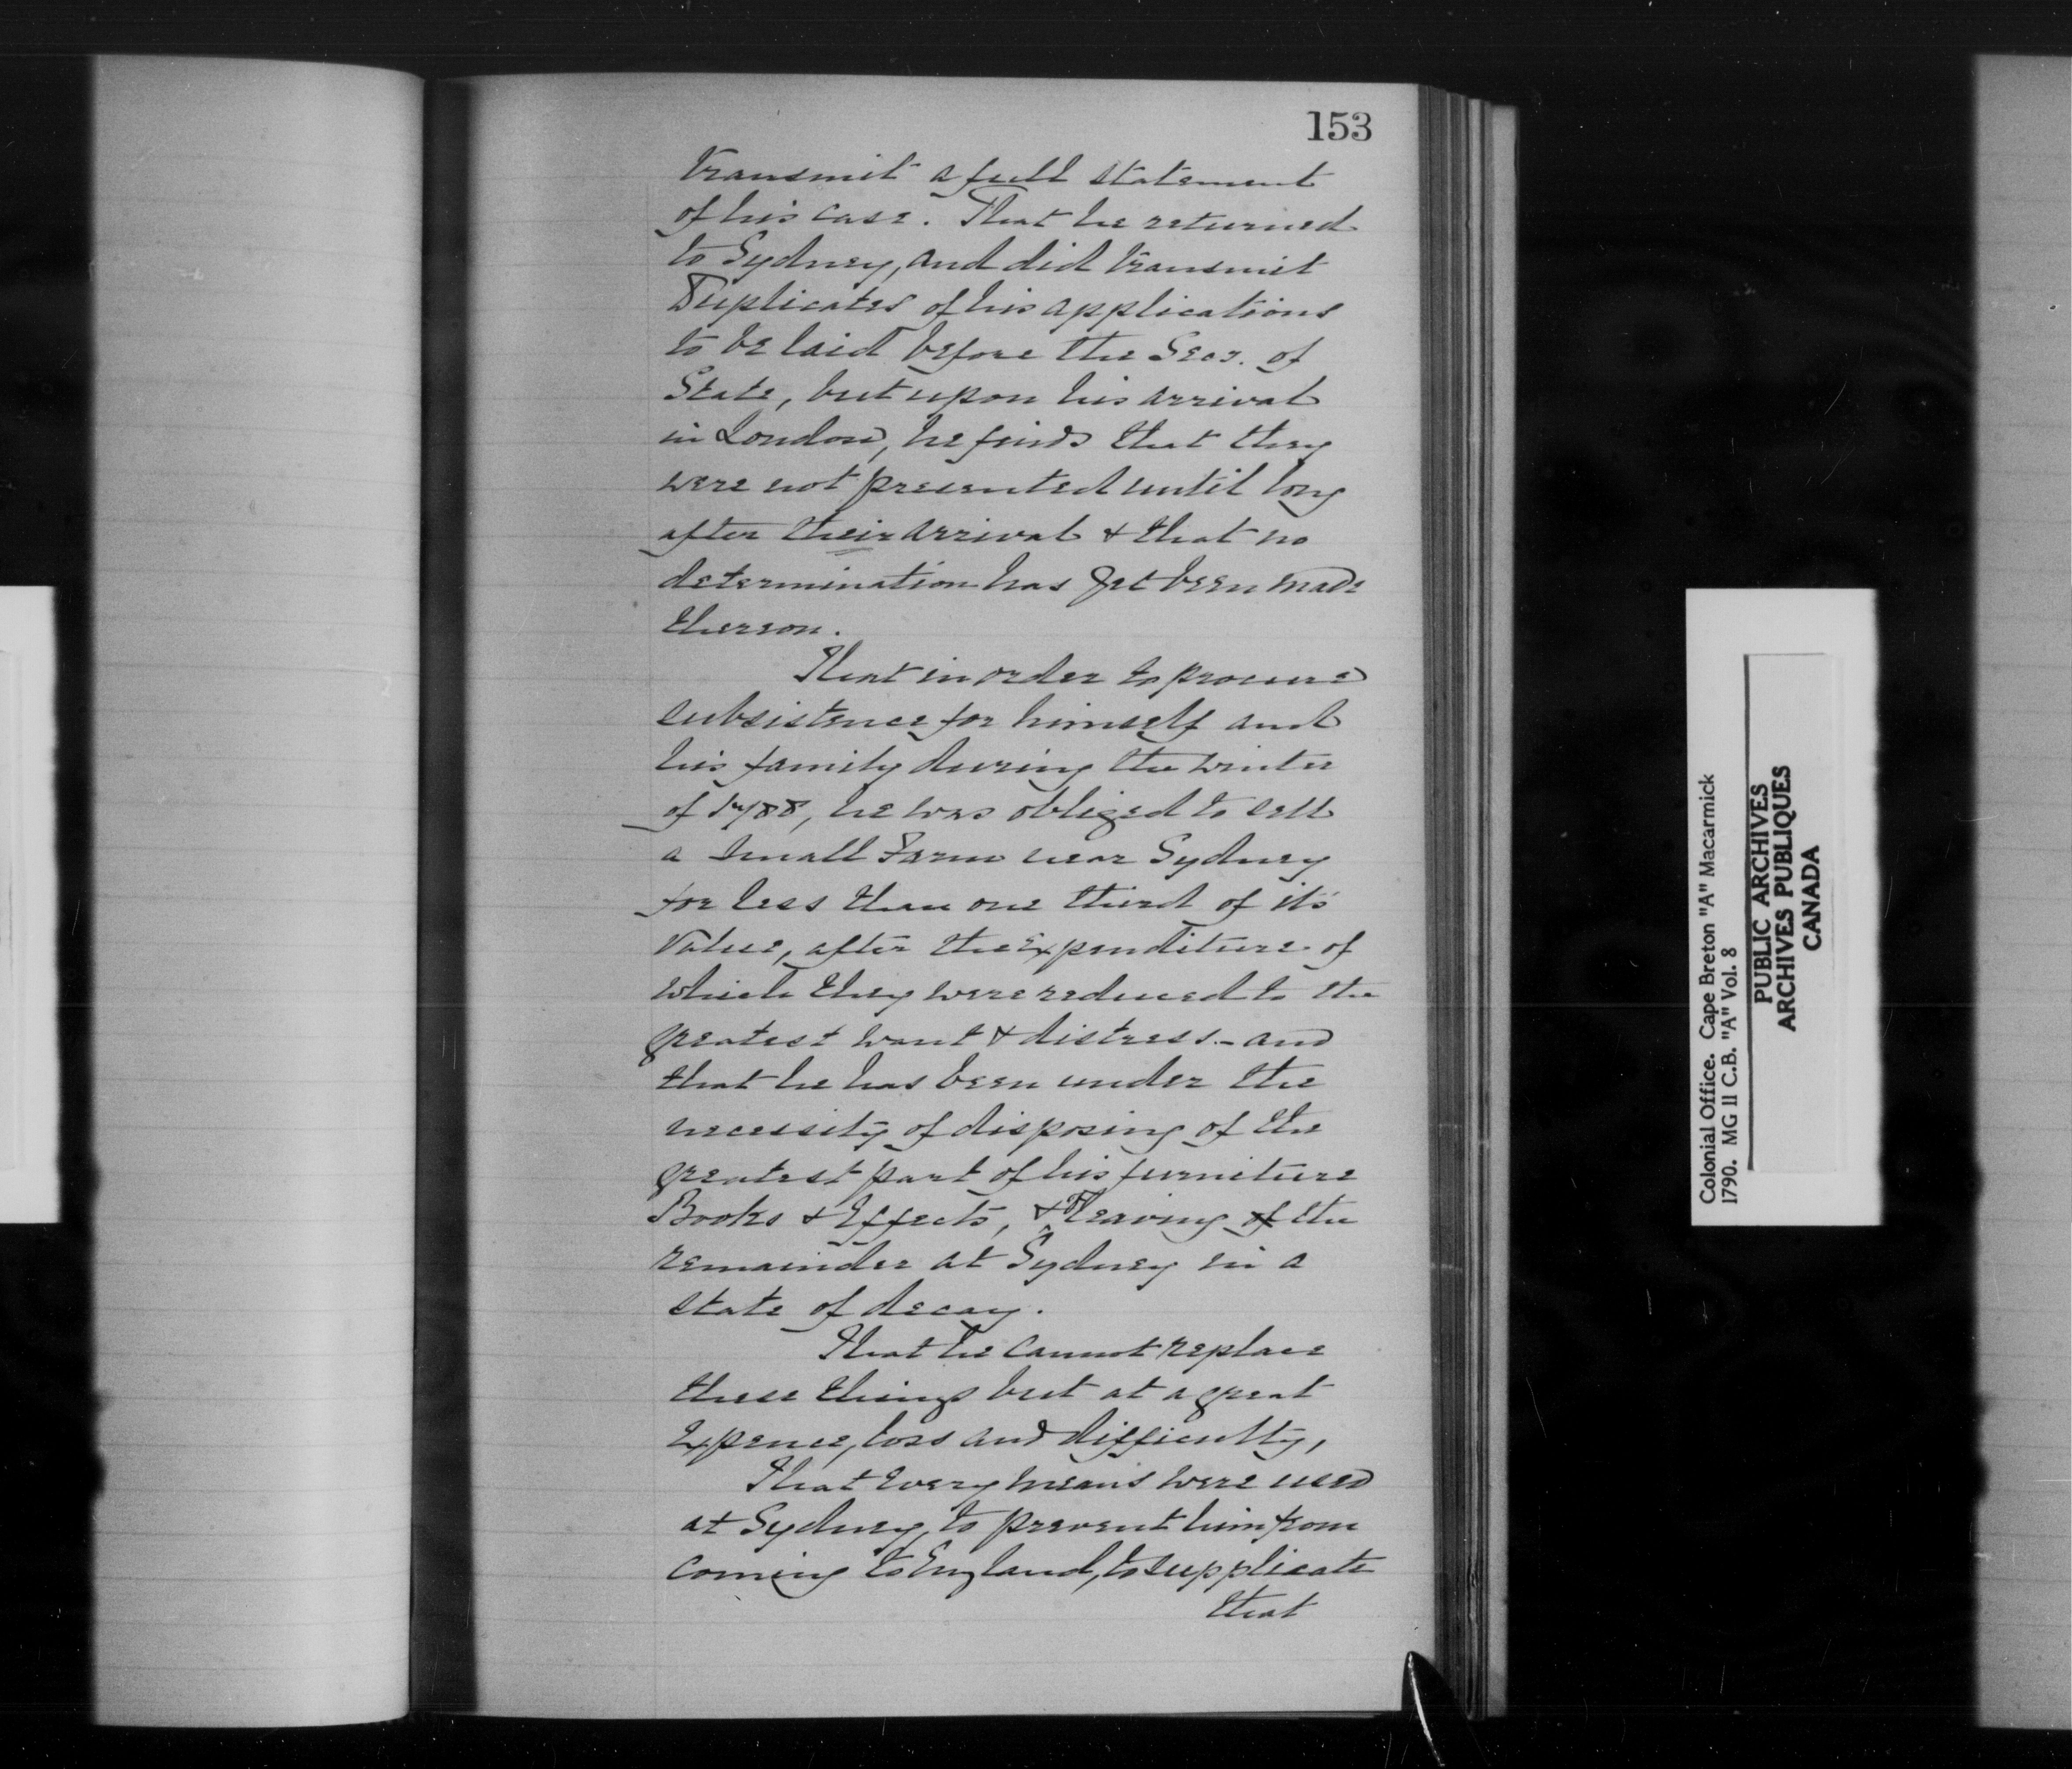 153
transmit a full statement
of his case. That he returned
to Sydney, and did transmit
Duplicates of his applications
to be laid before the Secy. of
State, but upon his arrival
in London, he finds that they
were not presented until long
after their arrival & that no
determination has yet been made
thereon.
That in order to procure
subsistence for himself and
his family during the winter
of 1788, he was obliged to sell
a small Farm near Sydney
for less than one third of it's
Value, after the Expenditure of
which they were reduced to the
greatest want & distress - and
that he has been under the
necessity of disposing of the
greatest part of his furniture
Books & Effects, & leaving of the
remainder at Sydney in a
state of decay.
That he cannot replace
these things but at a great
Expence, loss and difficulty,
That every means were used
at Sydney, to prevent him from
coming to England, to supplicate
that
Colonial Office. Cape Breton "A" Macarmick
1790. MG 11 C.B. "A" Vol. 8
PUBLIC ARCHIVES
ARCHIVES PUBLIQUES
CANADA